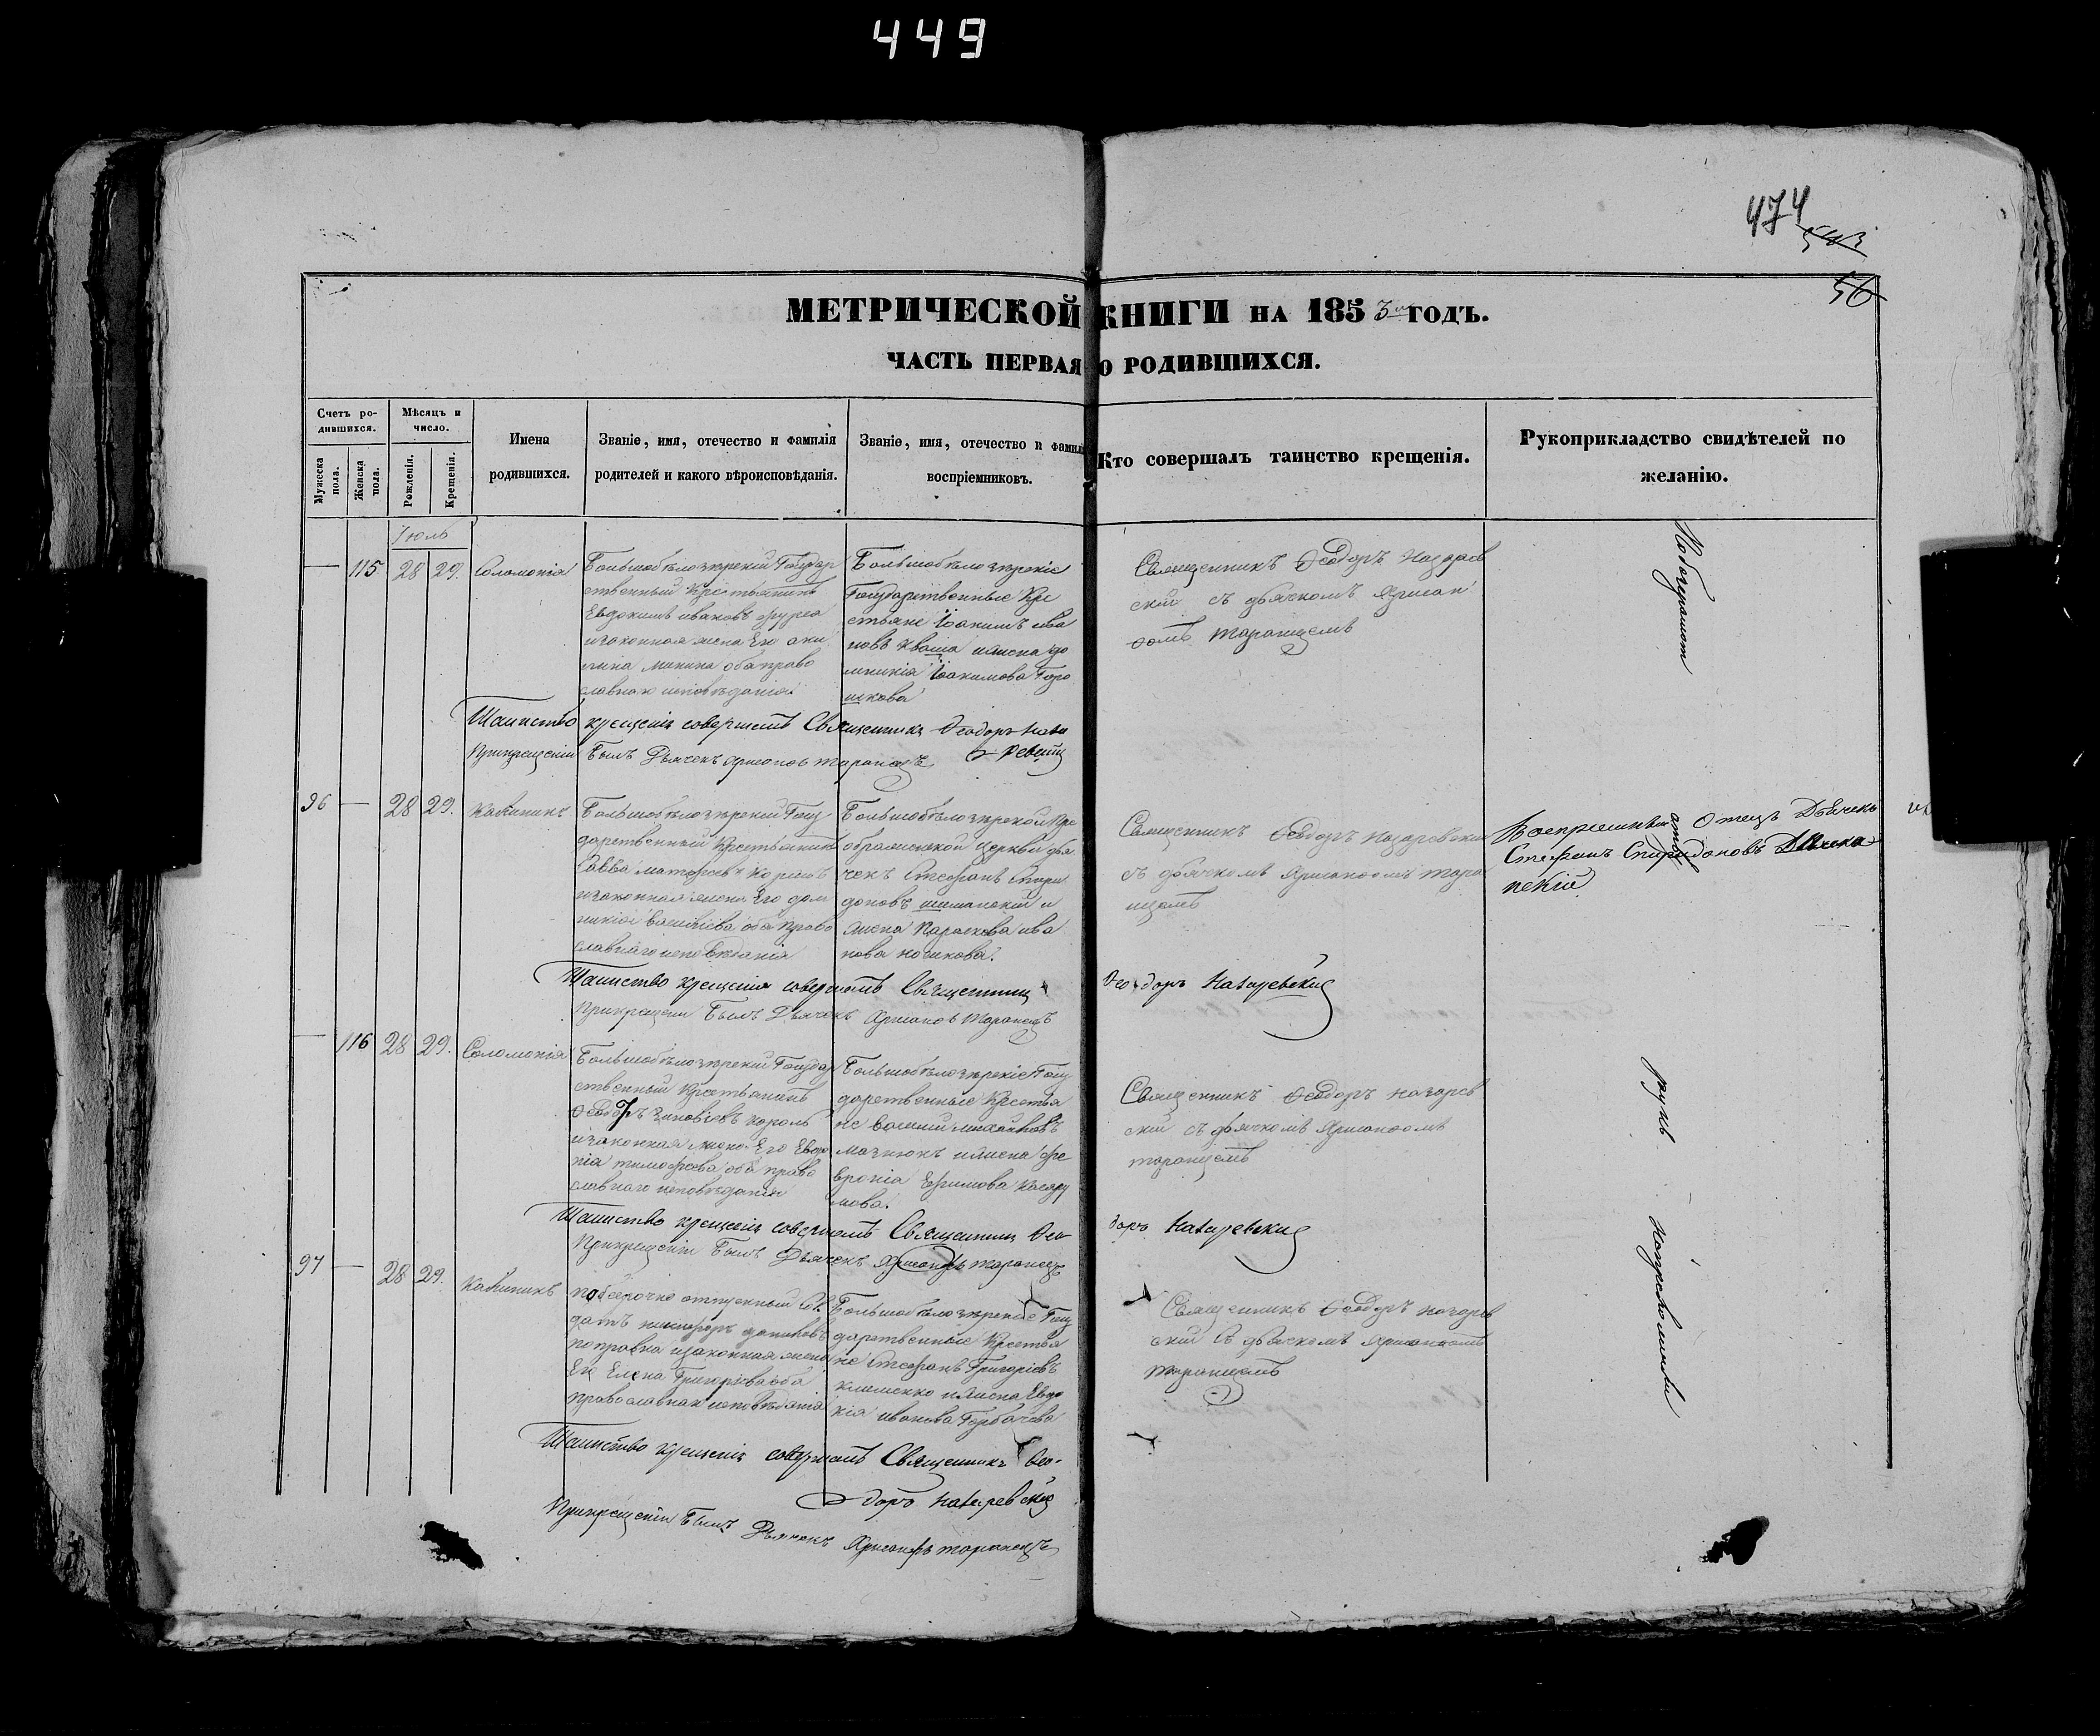 449
474
56
МЕТРИЧЕСКОЙ КНИГИ НА 1853 ГОДЪ.
ЧАСТЬ ПЕРВАЯ О РОДИВШИХСЯ.
Счетъ ро-
дившихся.
Мужеска
пола.
Женска
пола.
Мѣсяцъ и
число.
Рожденія.
Крещенія.
Имена
родившихся.
Званіе, имя, отечество и фамилія
родителей и какого вѣроисповѣданія.
Званіе, имя, отечество и фамилія
воспріемниковъ.
Кто совершалъ таинство крещенія.
Рукоприкладство свидѣтелей по
желанію.
Іюль
— 115 28 29. Соломонія
Большобѣлозерскій Государ
ственный Крестьянинъ
Евдокимъ ивановъ
изаконная жена Его аки
лина минина оба право
славнаго исповѣданія
Большобѣлозерскіе
Государственные Кре
стьяне Іоакимъ ива
новъ Кваша ижена до
мникія Іоакимова Горо
шкова
Священникъ Ѳеодоръ Назарев
скій съ дьячкомъ Хрисан
ѳомъ Таранцемъ
Таинство крещенія совершалъ Священникъ Ѳеодоръ Наза
ревскій
Прикрещеніи Былъ Дьячекъ Хрисанѳъ Таранецъ
96 — 28 29. Калиникъ
Большобѣлозерскій Госу
дарственный Крестьянинъ
Савва матвѣевъ
изаконная жена Его дом
никія Василіева оба Право
славнаго исповѣданія
Большобѣлозерской Пре
ображенской церкви дья
чекъ Стефанъ Спири
доновъ и
жена Параскева ива
нова
Священникъ Ѳеодоръ Назаревскій
съ дьячкомъ Хрисанѳомъ Тара
нцемъ
Воспріемный Отецъ Дьячекъ
Стефанъ Спиридоновъ
Таинство крещенія совершалъ Священникъ
Ѳеодоръ Назаревскій
Прикрещеніи Былъ Дьячекъ Хрисанѳъ Таранецъ
— 116 28 29. Соломонія
Большобѣлозерскій Государ
ственный Крестьянинъ
Ѳеодоръ Зиновіевъ Король
изаконная жена Его Евдо
кія тимофеева оба право
славнаго исповѣданія
Большобѣлозерскіе Госу
дарственные Крестья
не Василій михайловъ
мазнюкъ ижена Фе
вронія Ефимова
Священникъ Ѳеодоръ Назарев
скій съ дьячкомъ Хрисанѳомъ
таранцемъ
Таинство крещенія совершалъ Священникъ Ѳео
доръ Назаревскій
Прикрещеніи Былъ Дьячекъ Хрисанѳъ Таранецъ
97 — 28 29. Калиникъ
отпущенный Сол
датъ никифоръ даниловъ
поправка изаконная жена
Его Елена Григоріева оба
православнаго исповѣданія
Большобѣлозерскіе Госу
дарственные Крестья
не Стефанъ Григоріевъ
Клименко ижена Евдо
кія иванова Горбачева
Священникъ Ѳеодоръ Назарев
скій съ дьячкомъ Хрисанѳомъ
Таранцемъ
Таинство крещенія совершалъ Священникъ Ѳео-
доръ Назаревскій
Прикрещеніи Былъ Дьячекъ Хрисанѳъ Таранецъ
рукъ
Неприложили